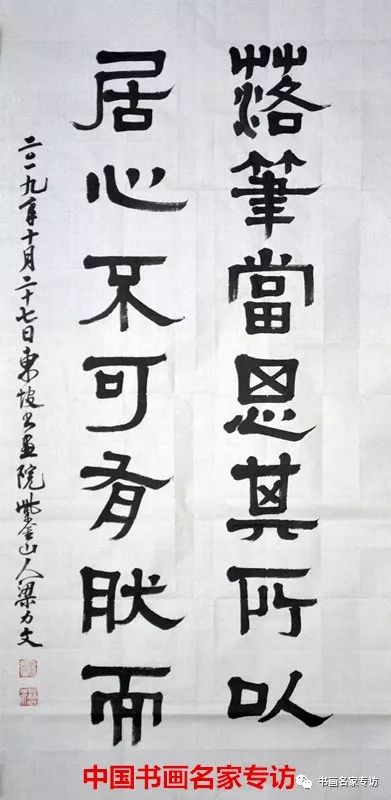 落筆當思其所以
居心不可有肰而
二〇一九年十月二十七日東坡书画院紫金山人梁力文
中国书画名家专访
书画名家专访